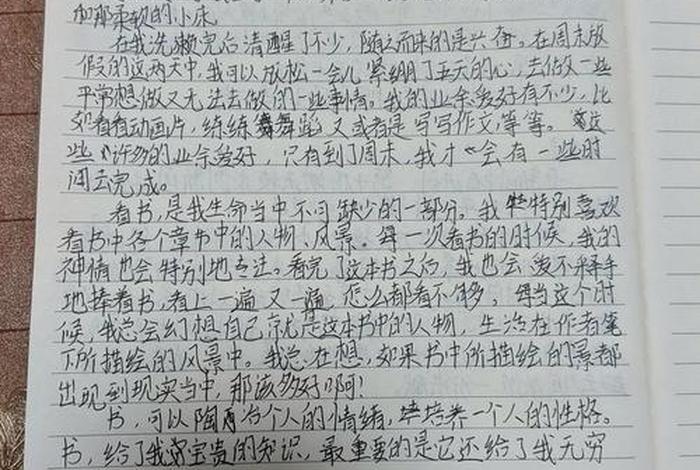 和那柔软的小床
在我洗漱完后清醒了不少，随之而来的是兴奋。在周末放
假的这两天中，我可以放松一会儿紧绷了五天的心，去做一些
平常想做又无法去做的一些事情。我的业余爱好有不少，比
如看看动画片，练练舞蹈，又或者是写写作文，等等。这
些许多的业余爱好，只有到了周末，我才会有一些时
间去完成。
看书，是我生命当中不可缺少的一部分。我特别喜欢
看书中各个章节中的人物、风景。每一次看书的时候，我的
神情也会特别地专注。看完了这本书之后，我也会爱不释手
地捧着书，看上一遍又一遍，怎么都看不够。每当这个时
候，我总会幻想自己就是这本书中的人物，生活在作者笔
下所描绘的风景中。我总在想，如果书中所描绘的景都
出现到现实当中，那该多好啊！
书，可以陶冶个人的情绪，培养一个人的性格。
书，给了我宝贵的知识，最重要的是它还给了我无穷